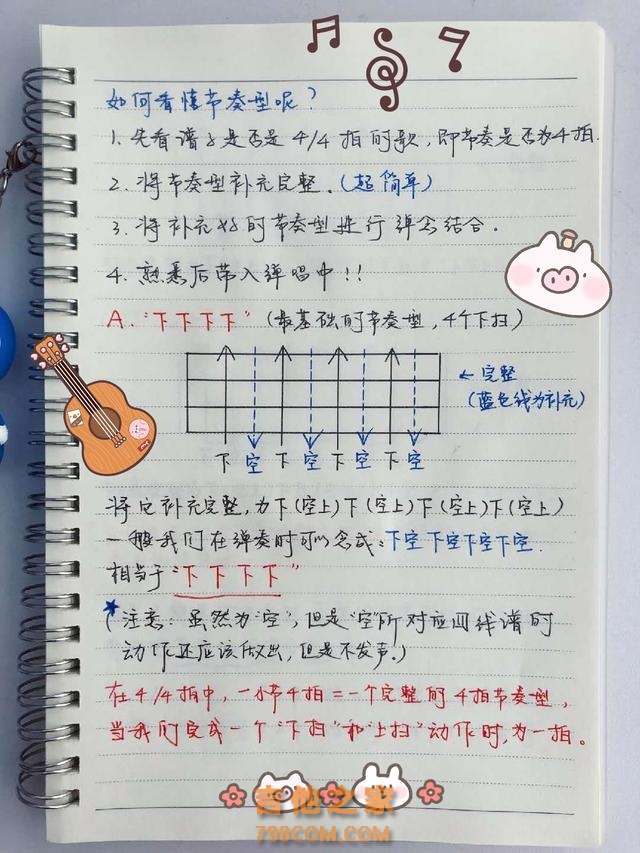 如何看懂节奏型呢？
1. 先看谱子是否是4/4拍的歌，即节奏是否为4拍.
2. 将节奏型补充完整.（超简单）
3. 将补充好的节奏型进行弹念结合.
4. 熟悉后带入弹唱中!!
A. "下下下下"（最基础的节奏型，4个下扫）
←完整
（蓝色线为补充）
下 空 下 空 下 空 下 空
将它补充完整，为下(空上)下(空上)下(空上)下(空上)
一般我们在弹奏时可以念成：下空下空下空下空.
相当于"下下下下"
★（注意：虽然为"空"，但是"空"所对应四线谱的
动作还应该做出，但是不发声.）
在4/4拍中，一小节4拍=一个完整的4拍节奏型，
当我们完成一个"下扫"和"上扫"动作时，为一拍。
吉他之家
798COM.COM